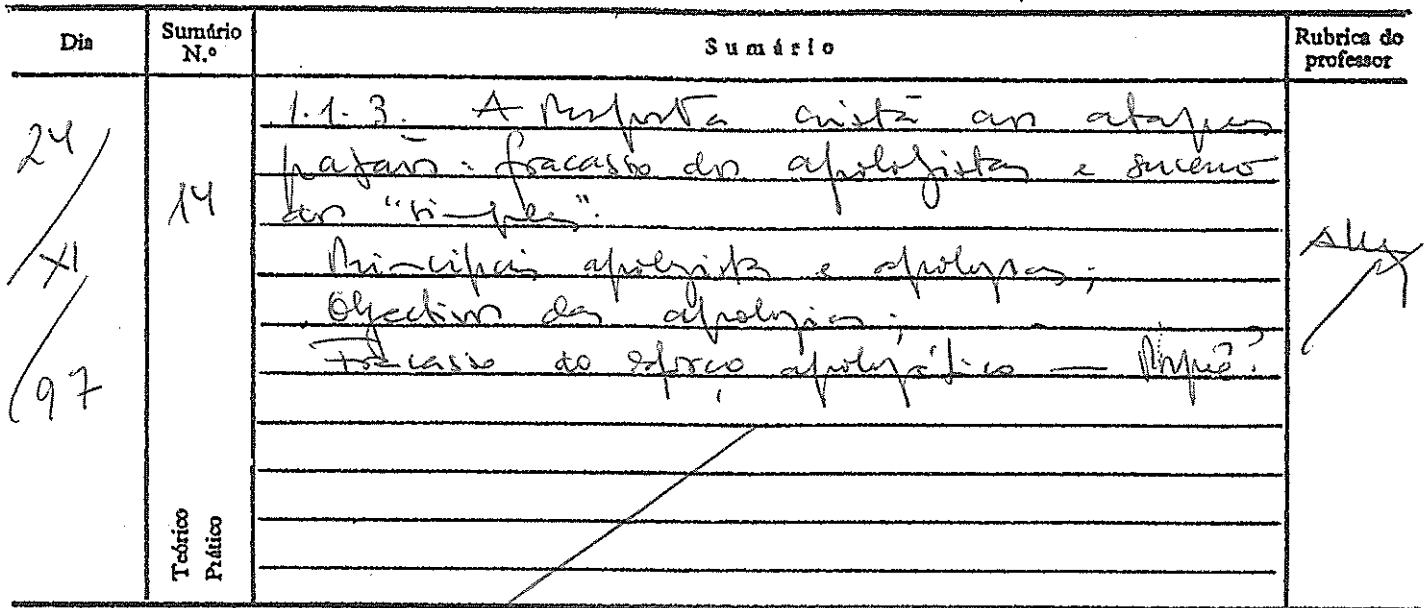 Dia
Sumário N.º
Sumário
Rubrica do professor
24/XI/97
14
1.1.3. A resposta cristã aos ataques
pagãos: fracasso dos apologistas e sucesso
dos "simples".
Principais apologistas e apologias;
Objectivo das apologias;
Fracasso do esforço apologético — Porquê?
Teórico
Prático